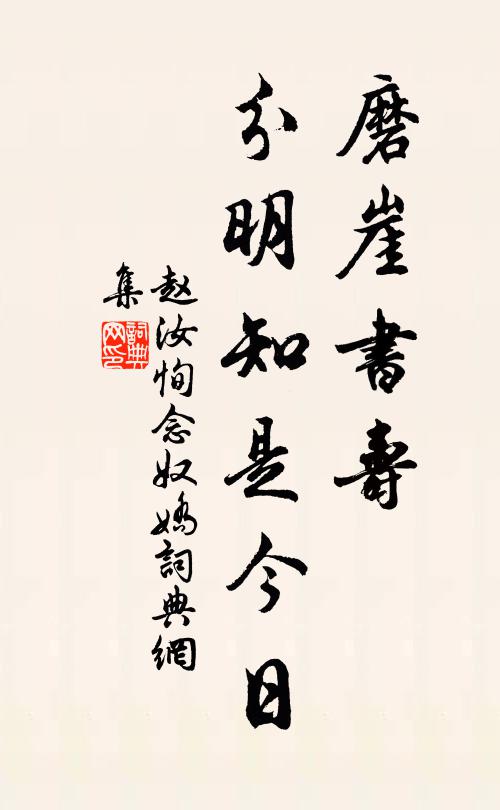 磨崖書壽
分明知是今日
赵汝恂念奴嬌詞典網
集
詞典
网印